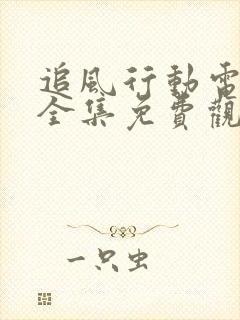 追風行動電
全集免費觀
一只虫